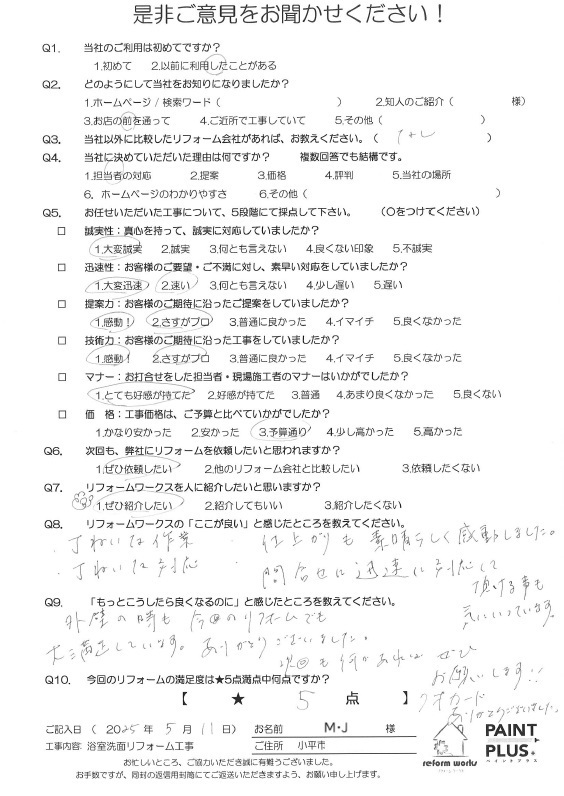 是非ご意見をお聞かせください！
Q1. 当社のご利用は初めてですか？
1.初めて 2.以前に利用したことがある
Q2. どのようにして当社をお知りになりましたか？
1.ホームページ / 検索ワード（ ） 2.知人のご紹介（ 様）
3.お店の前を通って 4.ご近所で工事していて 5.その他（ ）
Q3. 当社以外に比較したリフォーム会社があれば、お教えください。（ なし ）
Q4. 当社に決めていただいた理由は何ですか？ 複数回答でも結構です。
1.担当者の対応 2.提案 3.価格 4.評判 5.当社の場所
6. ホームページのわかりやすさ 6.その他（ ）
Q5. お任せいただいた工事について、5段階にて採点して下さい。 （○をつけてください）
□ 誠実性：真心を持って、誠実に対応していましたか？
1.大変誠実 2.誠実 3.何とも言えない 4.良くない印象 5.不誠実
□ 迅速性：お客様のご要望・ご不満に対し、素早い対応をしていましたか？
1.大変迅速 2.速い 3.何とも言えない 4.少し遅い 5.遅い
□ 提案力：お客様のご期待に沿ったご提案をしていましたか？
1.感動！ 2.さすがプロ 3.普通に良かった 4.イマイチ 5.良くなかった
□ 技術力：お客様のご期待に沿った工事をしていましたか？
1.感動！ 2.さすがプロ 3.普通に良かった 4.イマイチ 5.良くなかった
□ マナー：お打合せをした担当者・現場施工者のマナーはいかがでしたか？
1.とても好感が持てた 2.好感が持てた 3.普通 4.あまり良くなかった 5.良くない
□ 価 格：工事価格は、ご予算と比べていかがでしたか？
1.かなり安かった 2.安かった 3.予算通り 4.少し高かった 5.高かった
Q6. 次回も、弊社にリフォームを依頼したいと思われますか？
1.ぜひ依頼したい 2.他のリフォーム会社と比較したい 3.依頼したくない
Q7. リフォームワークスを人に紹介したいと思いますか？
1.ぜひ紹介したい 2.紹介してもいい 3.紹介したくない
Q8. リフォームワークスの「ここが良い」と感じたところを教えてください。
・丁ねいな作業 ・仕上がりも素晴らしく感動しました。
・丁ねいな対応 ・問合せに迅速に対応して
頂ける事も
気にいっています。
Q9. 「もっとこうしたら良くなるのに」と感じたところを教えてください。
外壁の時も今回のリフォームでも
大満足しています。ありがとうございました。
次回も何かあればぜひ
お願いします!!
クオカード
ありがとうございました。
Q10. 今回のリフォームの満足度は★5点満点中何点ですか？
【 ★ 5 点 】
ご記入日（ 2025年 5月 11日） お名前 M・J 様
工事内容: 浴室洗面リフォーム工事 ご住所 小平市
reform works
PAINT
PLUS+
ペイントプラス
お忙しいところ、ご協力いただき誠に有難うございました。
お手数ですが、同封の返信用封筒にてご返送いただきますよう、お願い申し上げます。